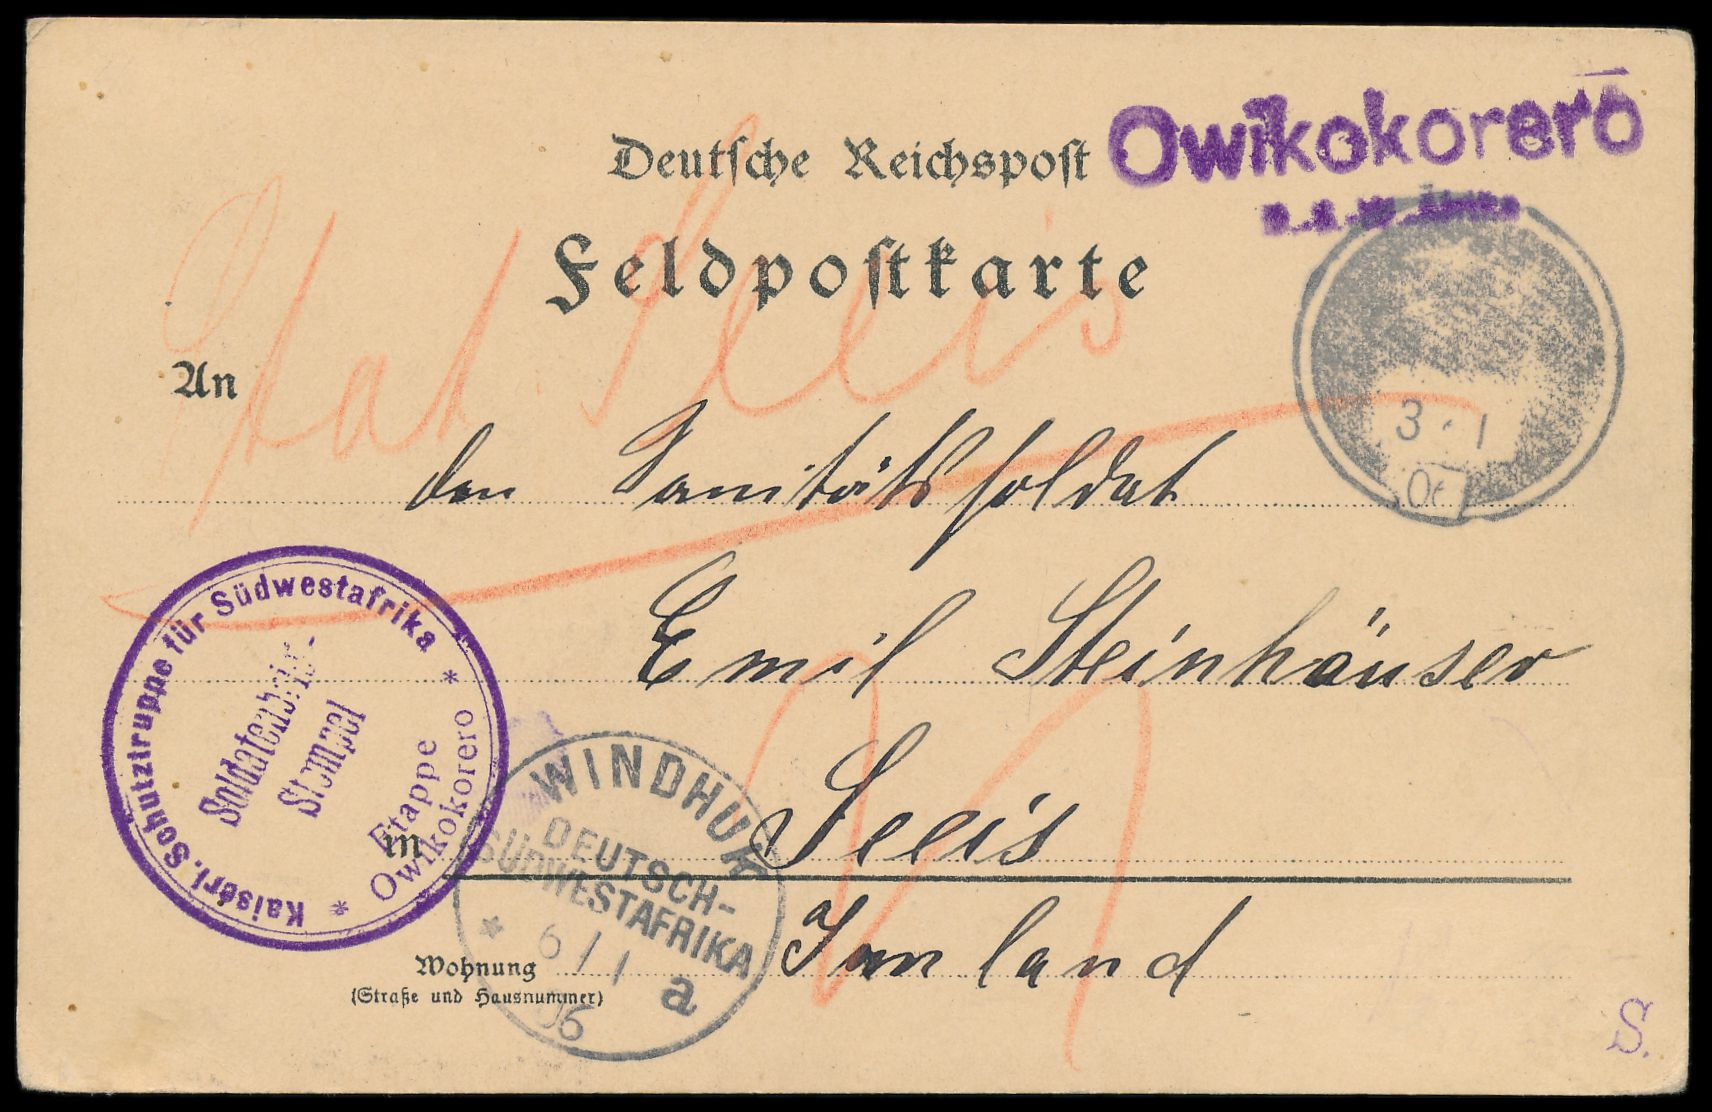 Deutsche Reichspost
Owikokorero
Feldpostkarte
Stat. Seeis
An
3 1
06
den Sanitätssoldat
Emil Steinhäuser
Kaiserl. Schutztruppe für Südwestafrika
Soldatenbrief-
Stempel
* Etappe
Owikokorero *
in
Seeis
WINDHUK
DEUTSCH-
SÜDWESTAFRIKA
* 6/1 a
06
Inland
Wohnung
(Straße und Hausnummer)
S.